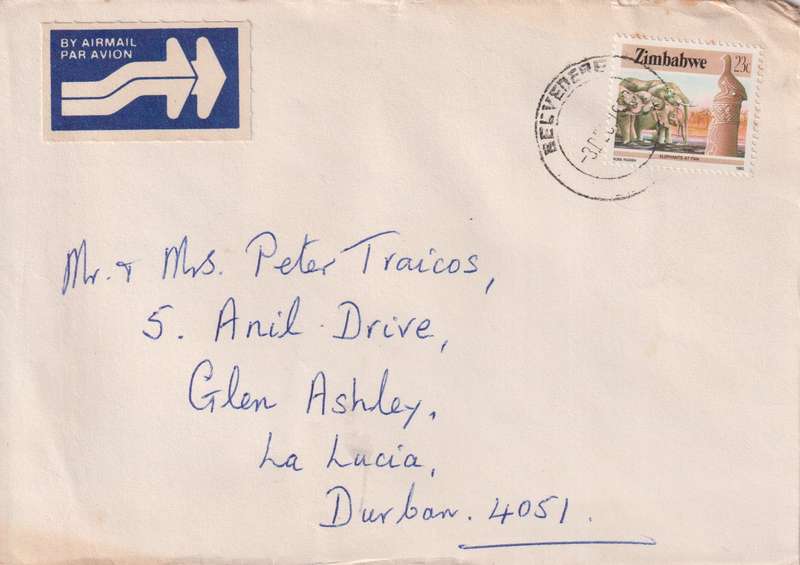 BY AIRMAIL
PAR AVION
Zimbabwe 23c
BELVEDERE
ELEPHANTS AT PAN
Mr. & Mrs. Peter Traicos,
5. Anil Drive,
Glen Ashley,
La Lucia,
Durban. 4051.